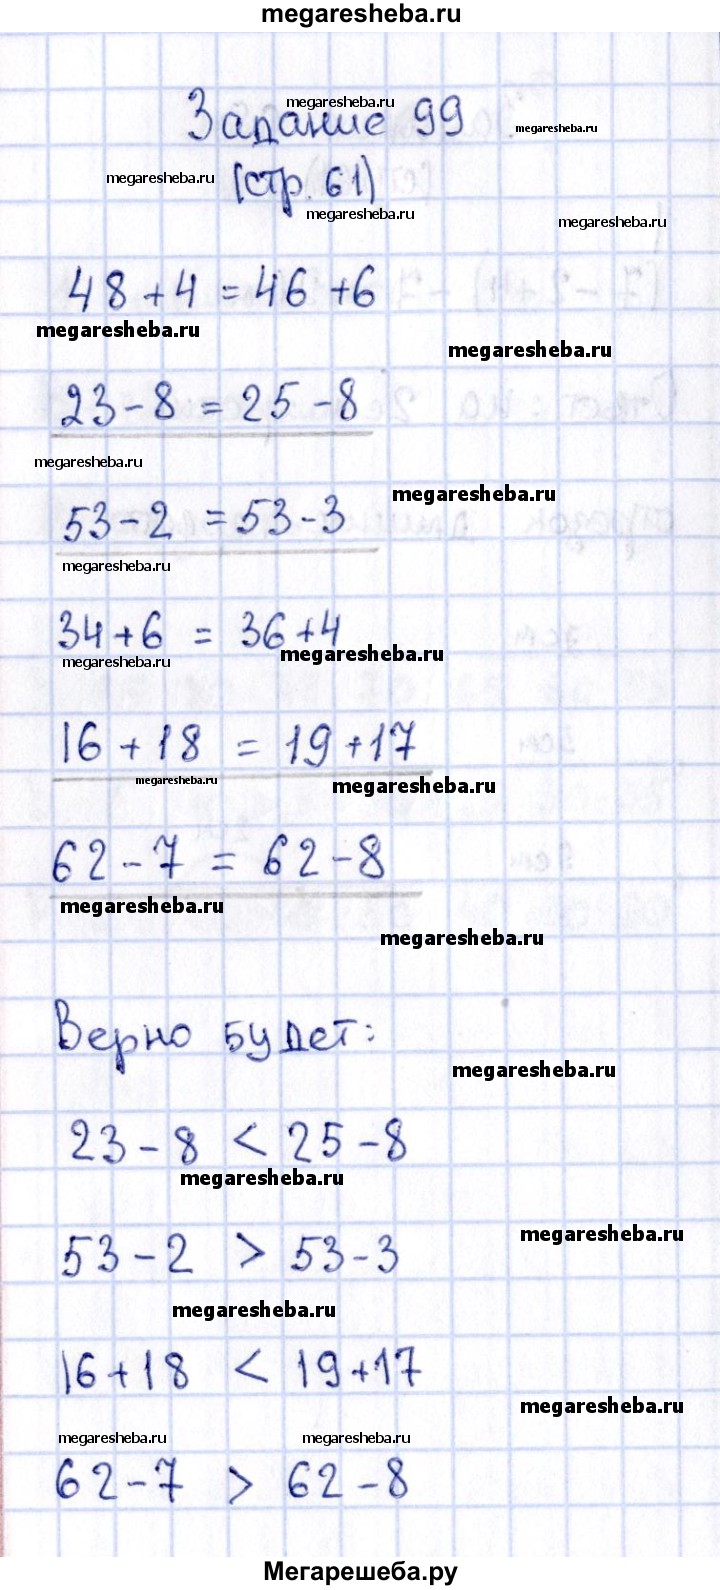 megaresheba.ru
megaresheba.ru
Задание 99
megaresheba.ru
megaresheba.ru
(стр. 61)
megaresheba.ru
megaresheba.ru
48 + 4 = 46 + 6
megaresheba.ru
megaresheba.ru
23 - 8 = 25 - 8
megaresheba.ru
megaresheba.ru
53 - 2 = 53 - 3
megaresheba.ru
34 + 6 = 36 + 4
megaresheba.ru
megaresheba.ru
16 + 18 = 19 + 17
megaresheba.ru
megaresheba.ru
62 - 7 = 62 - 8
megaresheba.ru
megaresheba.ru
Верно будет:
megaresheba.ru
23 - 8 < 25 - 8
megaresheba.ru
megaresheba.ru
53 - 2 > 53 - 3
megaresheba.ru
16 + 18 < 19 + 17
megaresheba.ru
megaresheba.ru
megaresheba.ru
62 - 7 > 62 - 8
Мегарешеба.ру